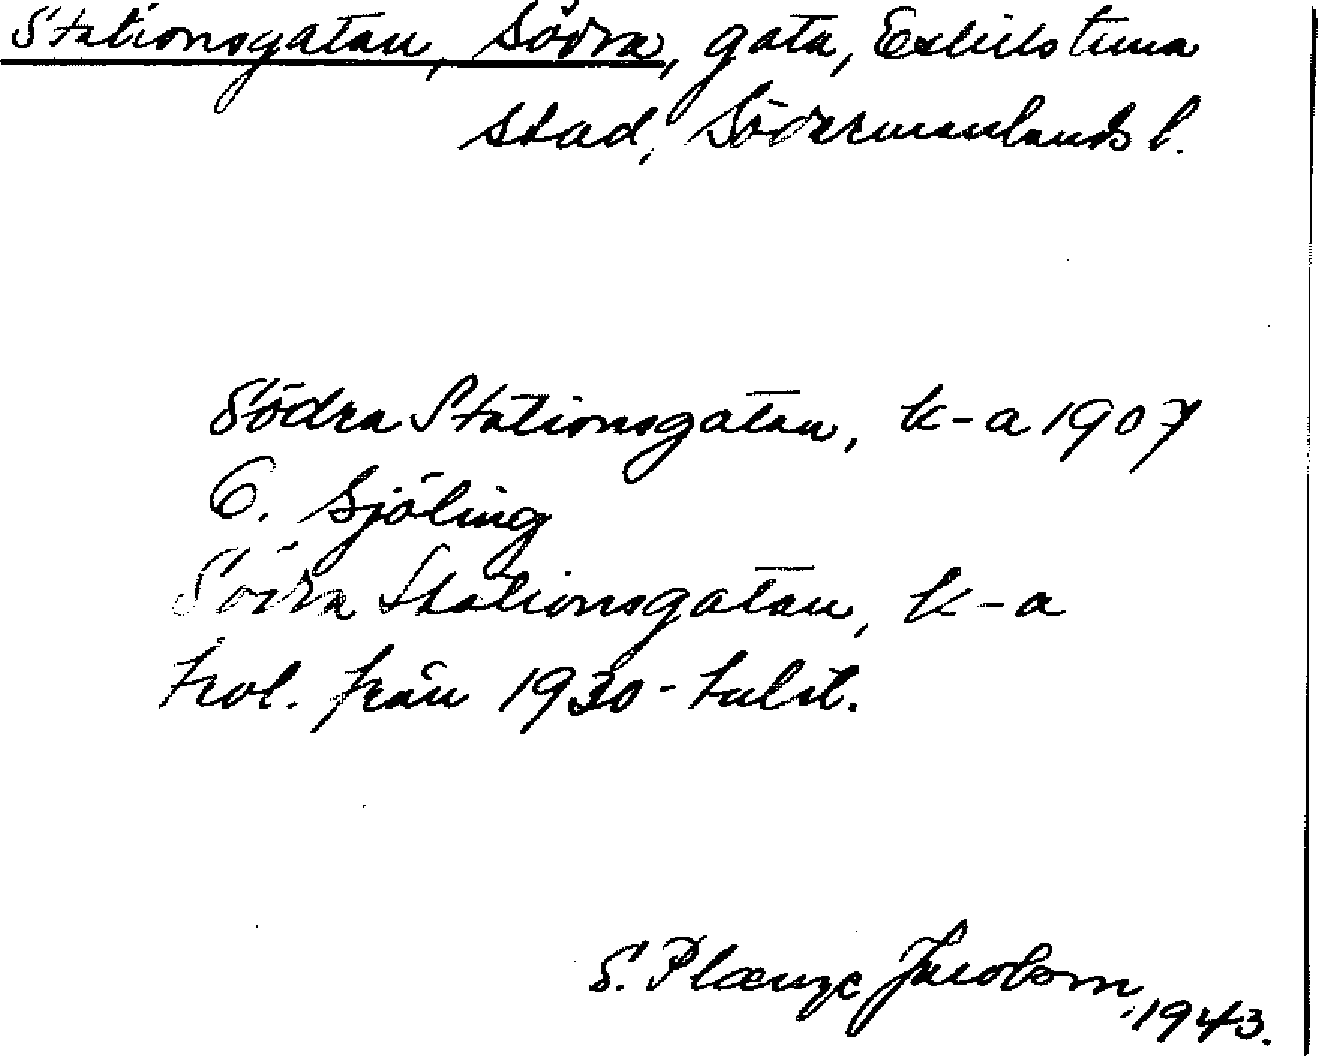 Stationsgatan, Södra, gata, Eskilstuna
stad, Södermanlands l.
Södra Stationsgatan, k-a 1907
C. Sjöling
Södra Stationsgatan, k-a
trol. från 1930-talet.
S. Plænge Jacobson, 1943.